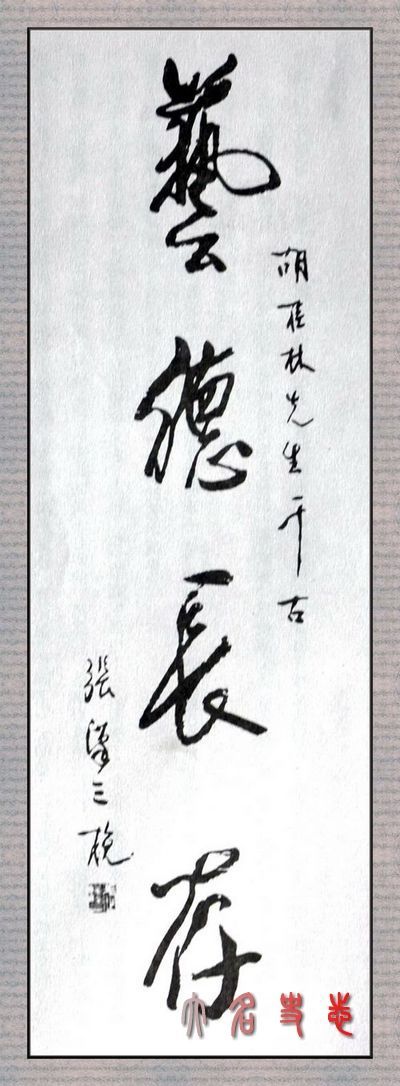 胡林先生千古
藝德長存
張漢三挽
大名